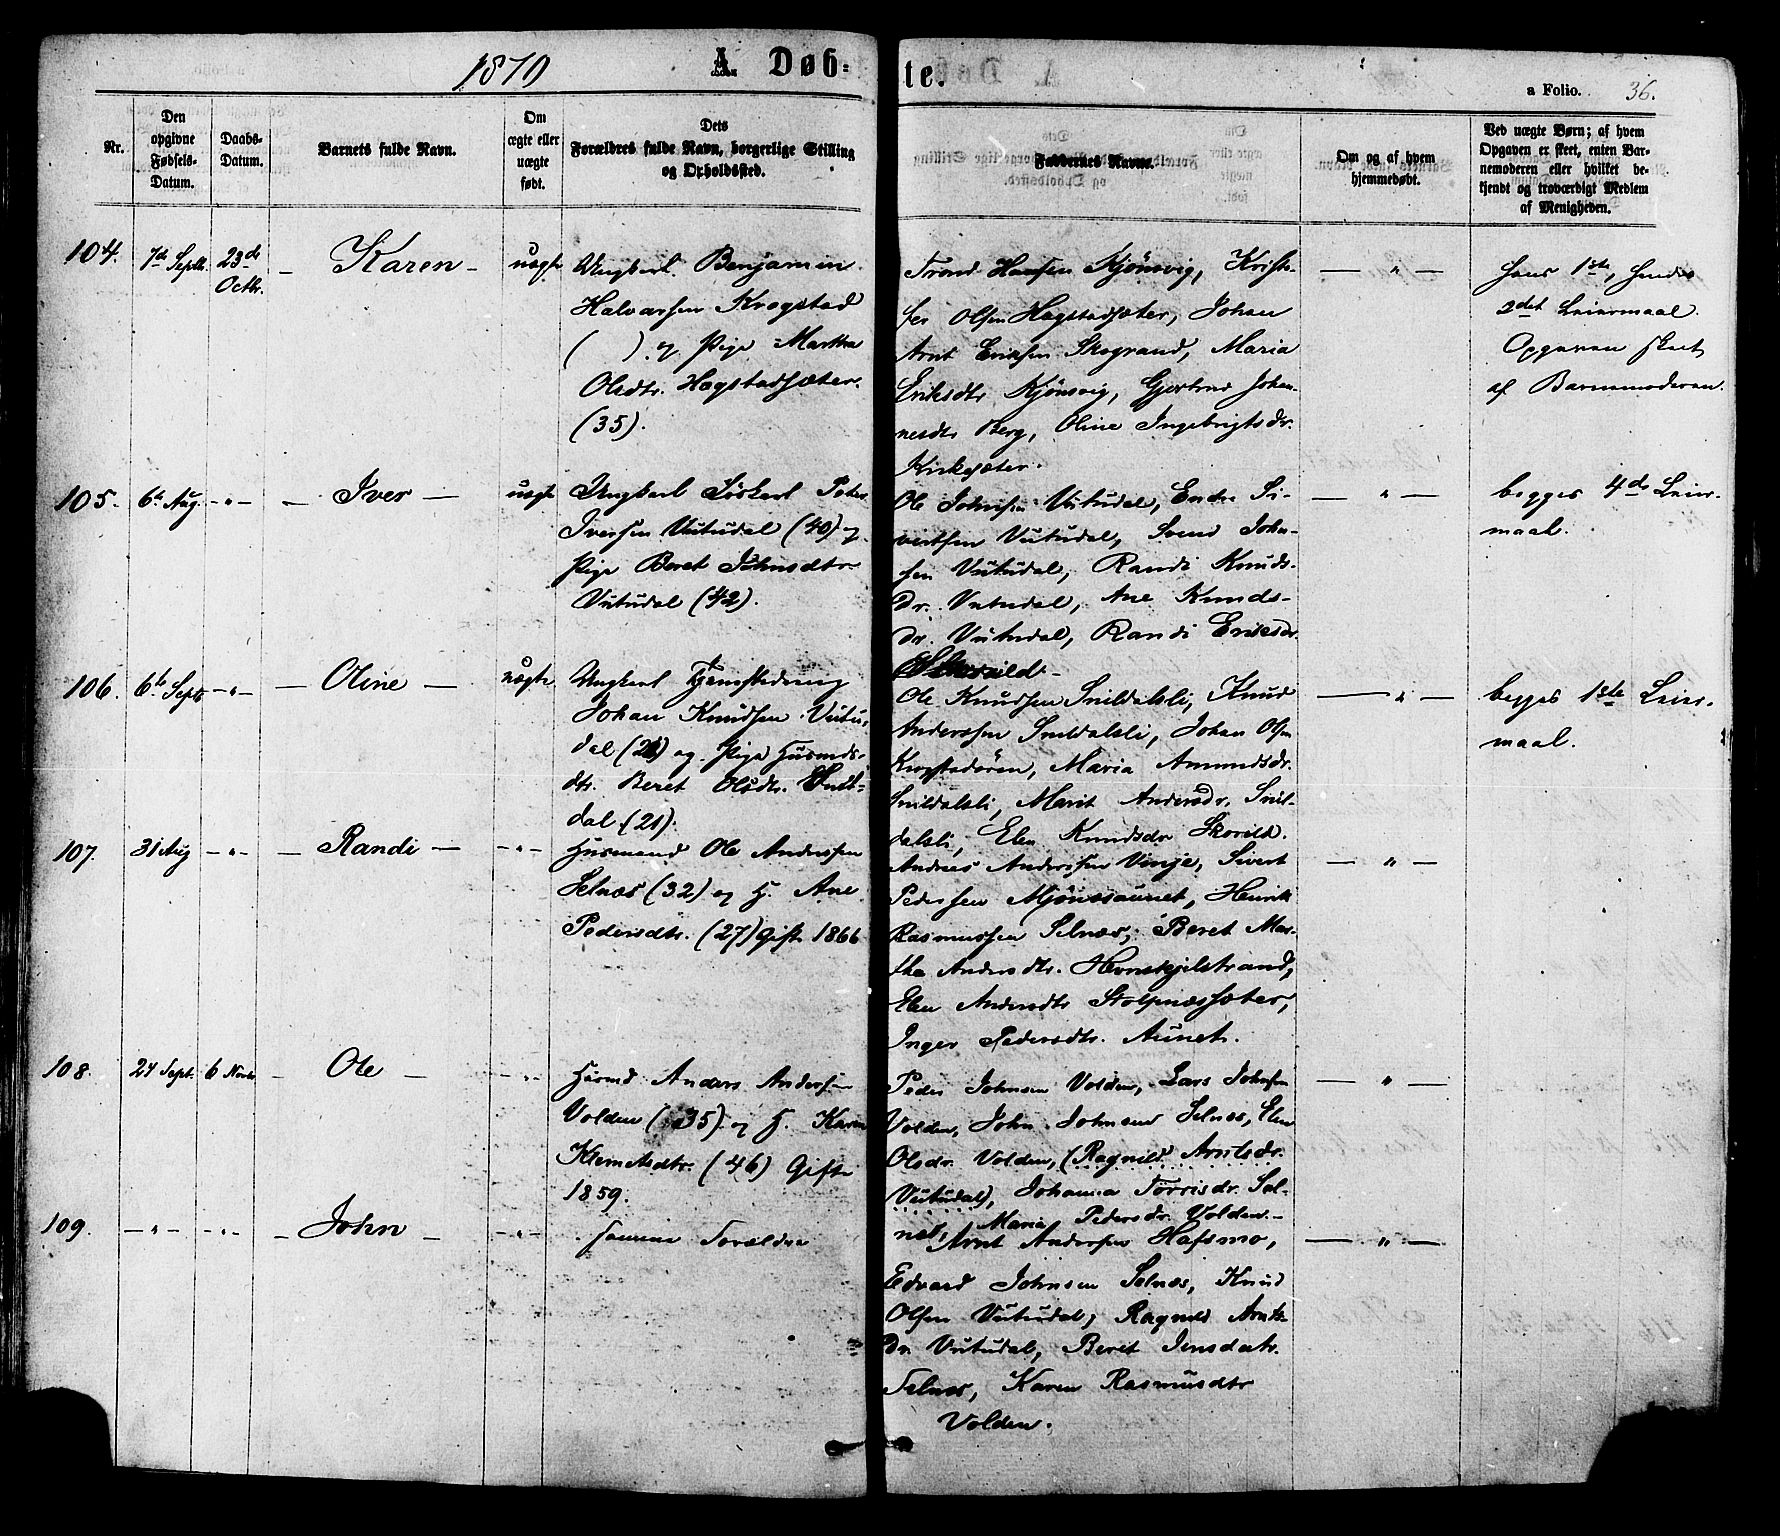 1870
A Døb-
te.
a Folio. 36.
Nr.
Den
opgivne
Fødsels-
Datum.
Daabs-
Datum.
Barnets fulde Navn.
Om
ægte eller
uægte
født.
Dets
Forældres fulde Navn, borgerlige Stilling
og Opholdssted.
Faddernes Navne.
Om og af hvem
hjemmedøbt.
Ved uægte Børn; af hvem
Opgaven er skeet, enten Bar-
nemoderen eller hvilket be-
kjendt og troværdigt Medlem
af Menigheden.
104. 7de Septb. 23de Octbr. - Karen - uægte
Ungkarl. Benjamin
Halvorsen Krogstad
( ). og Pige Martha
Olsdtr. Hogstadsæter.
(35).
Trond Hansen Kjønsvig, Kristo-
fer Olsen Hogstadsæter, Johan
Arnt Eriksen Skogrand, Maria
Eriksdtr Kjønsvig, Gjertrud Johan-
nesdtr Berg, Oline Ingebrigtsdr.
Kirkesæter.
— " —
hans 1ste, hendes
2det Leiermaal.
Opgaven skeet
af Barnemoderen.
105. 6te Aug. - " - — Iver — uægte
Ungkarl Inderst Peter
Iversen Vutudal (40) og
Pige Beret Johnsdtr
Vutudal (42).
Ole Johnsen Vutudal, Endre Si-
vertsen Vutudal, Svend John-
sen Vutudal, Randi Knuds-
dr. Vutudal, Ane Knuds-
dr. Vutudal, Randi Eriksdr.
Skorild -
— " —
begges 4de Leier-
maal.
106. 6te Septb - " - — Oline — uægte
Ungkarl Tjenestedreng
Johan Knudsen Vutu-
dal (21) og Pige Husmds-
dtr. Beret Olsdtr. Snil-
dal (21).
Ole Knudsen Snildalsli, Knud
Anderssen Snildalsli, Johan Olsen
Krogstadøren, Maria Amundsdr.
Snildalsli, Marit Andersdr. Snil-
dalsli, Elen Knudsdr Skorild.
— " —
begges 1ste Leier-
maal.
107. 31 Aug - " - — Randi — - " -
Husmand Ole Anderssen
Selnæs (32) og H. Ane
Pedersdtr. (27) gift 1866
Andreas Anderssen Vinje, Sivert
Pedersen Mjønesaunet, Henrik
Rasmussen Selnæs, Beret Mar-
tha Andersdtr. Hevnskjelstrand,
Elen Andersdtr Stolpnessæter,
Inger Pedersdtr. Aunet.
— " —
108. 24 Sept. 6 Novb - Ole - - " -
Husmd Anders Andersen
Volden (35) og H. Karen
Klemetsdtr. (46) Gift
1859.
Peder Johnsen Volden, Lars Johnsen
Volden, John Johnsen Selnæs, Elen
Olsdr. Volden, (Ragnild Arntsdr.
Vutudal), Johanna Torrisdr. Sel-
næs, Maria Pedersdr. Volden.-
— " —
109. - " - - " - - John - - " -
Samme Forældre
Arnt Andersen Hafsmo,
Edvard Johnsen Selnæs, Knud
Olsen Vutudal, Ragnild Arnts-
dr. Vutudal, Beret Jensdatr.
Selnæs, Karen Rasmusdtr
Volden.
— " —